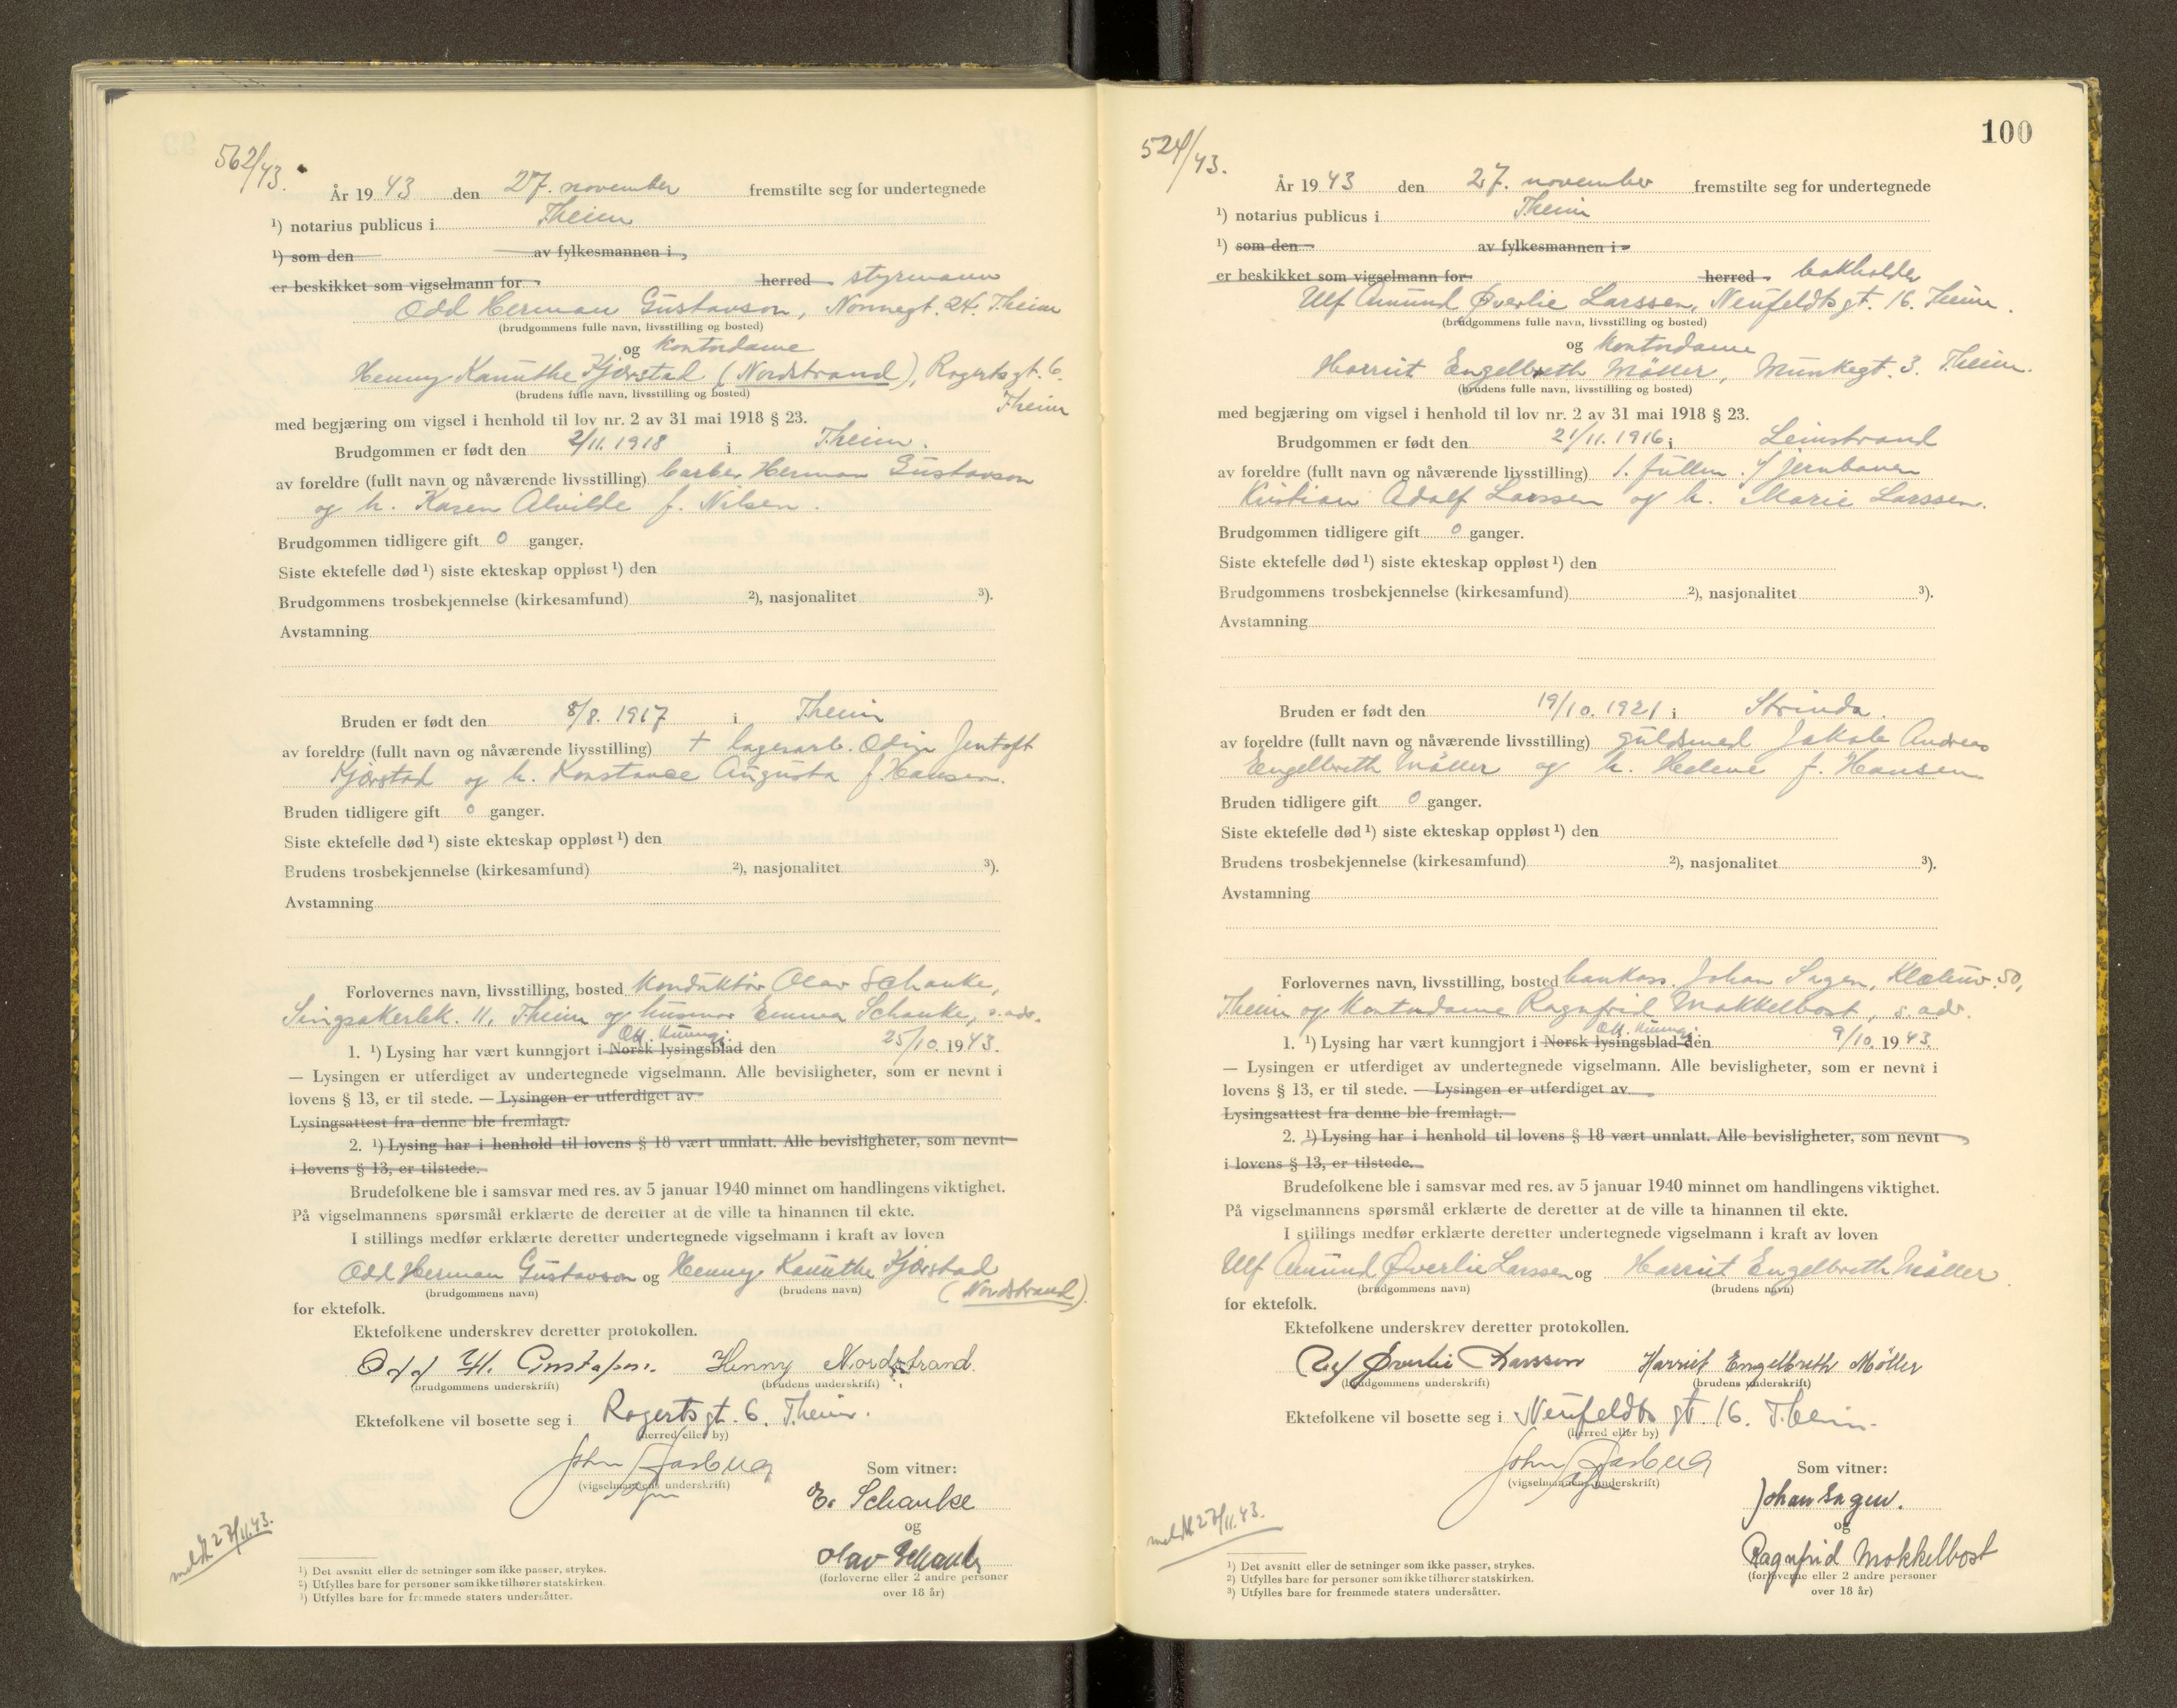 562/43.
År 19 43 den 27. november fremstilte seg for undertegnede
¹) notarius publicus i Theim
¹) som den av fylkesmannen i
er beskikket som vigselmann for herred styrmann
Odd Herman Gustavson, Nonnegt. 24. Theim
(brudgommens fulle navn, livsstilling og bosted)
og kontordame
Henny Kanuthe Kjørstad (Nordstrand), Rogertsgt. 6.
(brudens fulle navn, livsstilling og bosted)
Theim
med begjæring om vigsel i henhold til lov nr. 2 av 31 mai 1918 § 23.
Brudgommen er født den 2/11. 1918 i Theim.
av foreldre (fullt navn og nåværende livsstilling) barber Herman Gustavson
og h. Karen Alvilde f. Nilsen.
Brudgommen tidligere gift 0 ganger.
Siste ektefelle død ¹) siste ekteskap oppløst ¹) den
Brudgommens trosbekjennelse (kirkesamfund) ²), nasjonalitet ³).
Avstamning
Bruden er født den 8/8. 1917 i Theim
av foreldre (fullt navn og nåværende livsstilling) + lagerarb. Odin Jentoft
Kjørstad og h. Konstance Augusta f Hansen.
Bruden tidligere gift 0 ganger.
Siste ektefelle død ¹) siste ekteskap oppløst ¹) den
Brudens trosbekjennelse (kirkesamfund) ²), nasjonalitet ³).
Avstamning
Forlovernes navn, livsstilling, bosted Konduktør Olav Schanke,
Singsakerbk. 11, Theim og husmor Emma Schanke, s. adr.
Off. kunngj.
1. ¹) Lysing har vært kunngjort i Norsk lysingsblad den 25/10. 1943.
— Lysingen er utferdiget av undertegnede vigselmann. Alle bevisligheter, som er nevnt i
lovens § 13, er til stede. — Lysingen er utferdiget av
Lysingsattest fra denne ble fremlagt.
2. ¹) Lysing har i henhold til lovens § 18 vært unnlatt. Alle bevisligheter, som nevnt
i lovens § 13, er tilstede.
Brudefolkene ble i samsvar med res. av 5 januar 1940 minnet om handlingens viktighet.
På vigselmannens spørsmål erklærte de deretter at de ville ta hinannen til ekte.
I stillings medfør erklærte deretter undertegnede vigselmann i kraft av loven
Odd Herman Gustavson og Henny Kanuthe Kjørstad
(brudgommens navn) (brudens navn) (Nordstrand).
for ektefolk.
Ektefolkene underskrev deretter protokollen.
Odd H. Gustafson. Henny Nordstrand.
(brudgommens underskrift) (brudens underskrift)
Ektefolkene vil bosette seg i Rogertsgt. 6. Theim.
(herred eller by)
John Aasbug
(vigselmannens underskrift)
Som vitner:
E. Schanke
og
Olav Schanke
(forloverne eller 2 andre personer
over 18 år)
meldt 27/11.43.
¹) Det avsnitt eller de setninger som ikke passer, strykes.
²) Utfylles bare for personer som ikke tilhører statskirken.
³) Utfylles bare for fremmede staters undersåtter.
100
524/43.
År 19 43 den 27. november fremstilte seg for undertegnede
¹) notarius publicus i Theim
¹) som den av fylkesmannen i
er beskikket som vigselmann for herred bokholder
Ulf Amund Øverlie Larssen, Neufeldtsgt. 16. Theim.
(brudgommens fulle navn, livsstilling og bosted)
og kontordame
Harriet Engelbreth Møller, Munkegt. 3. Theim.
(brudens fulle navn, livsstilling og bosted)
med begjæring om vigsel i henhold til lov nr. 2 av 31 mai 1918 § 23.
Brudgommen er født den 21/11. 1916 i Leinstrand
av foreldre (fullt navn og nåværende livsstilling) 1. fullm. v/ jernbanen
Kristian Adolf Larssen og h. Marie Larssen.
Brudgommen tidligere gift 0 ganger.
Siste ektefelle død ¹) siste ekteskap oppløst ¹) den
Brudgommens trosbekjennelse (kirkesamfund) ²), nasjonalitet ³).
Avstamning
Bruden er født den 19/10. 1921 i Strinda.
av foreldre (fullt navn og nåværende livsstilling) gullsmed Jakob Andreas
Engelbreth Møller og h. Helene f. Hansen
Bruden tidligere gift 0 ganger.
Siste ektefelle død ¹) siste ekteskap oppløst ¹) den
Brudens trosbekjennelse (kirkesamfund) ²), nasjonalitet ³).
Avstamning
Forlovernes navn, livsstilling, bosted bankass. Johan Sagen, Klæbuv. 50,
Theim og Kontordame Ragnfrid Mokkelbost, s. adr.
Off. kunngj.
1. ¹) Lysing har vært kunngjort i Norsk lysingsblad den 9/10. 1943.
— Lysingen er utferdiget av undertegnede vigselmann. Alle bevisligheter, som er nevnt i
lovens § 13, er til stede. — Lysingen er utferdiget av
Lysingsattest fra denne ble fremlagt.
2. ¹) Lysing har i henhold til lovens § 18 vært unnlatt. Alle bevisligheter, som nevnt
i lovens § 13, er tilstede.
Brudefolkene ble i samsvar med res. av 5 januar 1940 minnet om handlingens viktighet.
På vigselmannens spørsmål erklærte de deretter at de ville ta hinannen til ekte.
I stillings medfør erklærte deretter undertegnede vigselmann i kraft av loven
Ulf Amund Øverlie Larssen og Harriet Engelbreth Møller
(brudgommens navn) (brudens navn)
for ektefolk.
Ektefolkene underskrev deretter protokollen.
Ulf Øverlie Larssen Harriet Engelbreth Møller
(brudgommens underskrift) (brudens underskrift)
Ektefolkene vil bosette seg i Neufeldts gt. 16. Theim.
(herred eller by)
John Aasbug
(vigselmannens underskrift)
Som vitner:
Johan Sagen.
og
Ragnfrid Mokkelbost
(forloverne eller 2 andre personer
over 18 år)
meldt 27/11.43.
¹) Det avsnitt eller de setninger som ikke passer, strykes.
²) Utfylles bare for personer som ikke tilhører statskirken.
³) Utfylles bare for fremmede staters undersåtter.